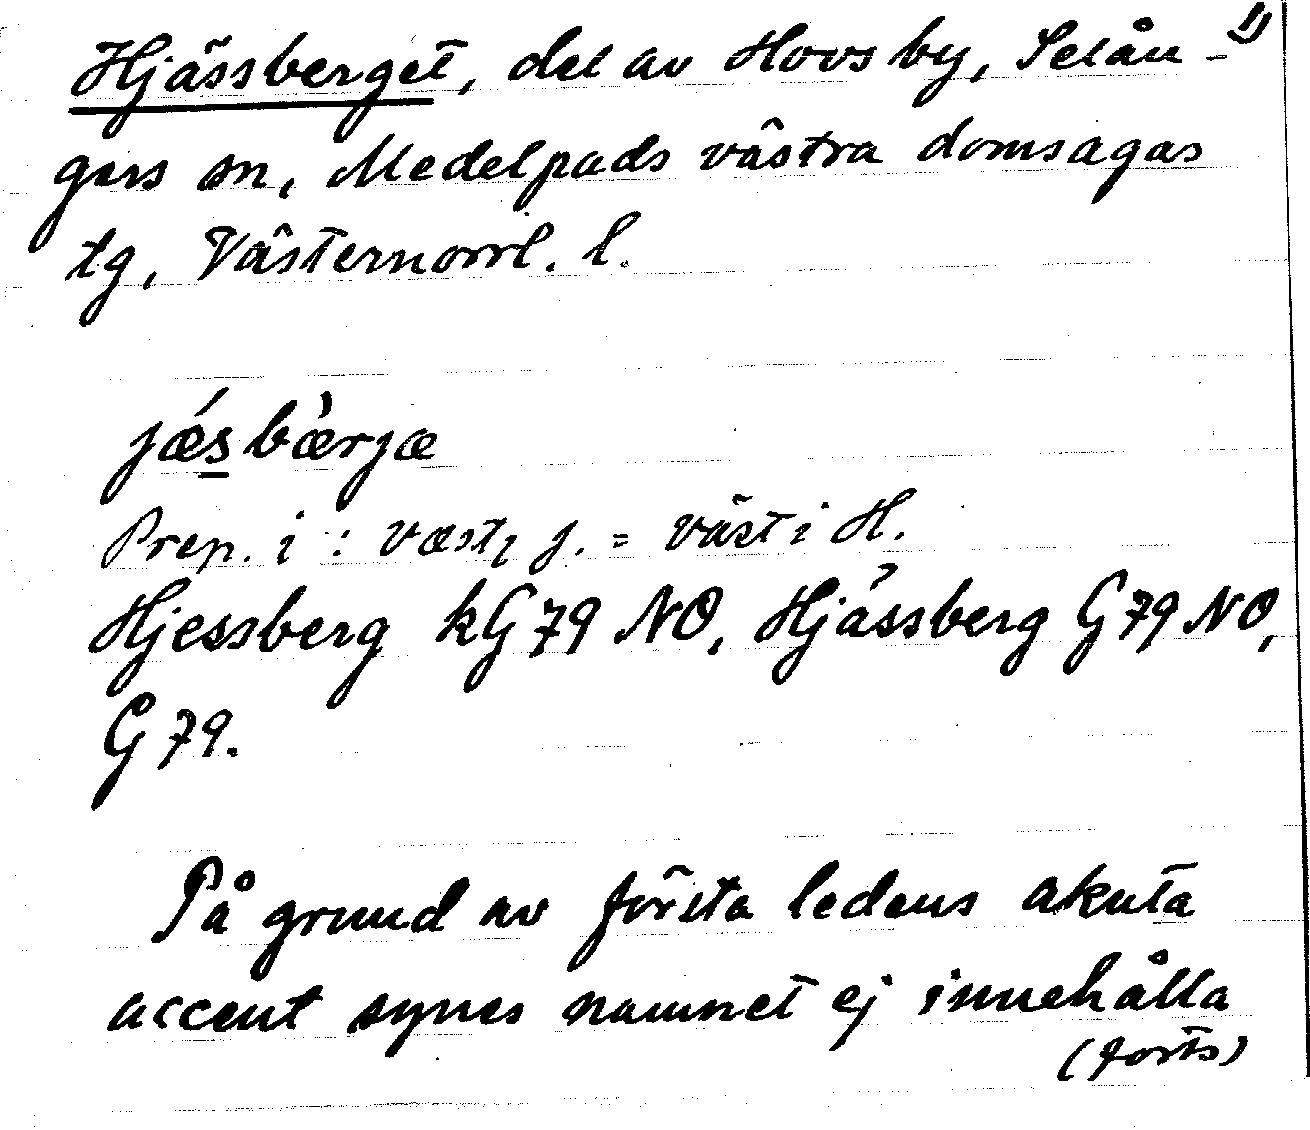 Hjässberget, del av Hovs by, Selån- 1)
gers sn, Medelpads västra domsagas
tg, Västernorrl. l.
jǽsbæ̀rjæ
Prep. i : væstı j. = väst i H.
Hjessberg kG79 NO, Hjässberg G79 NO,
G79.
På grund av första ledens akuta
accent synes namnet ej innehålla
(forts)